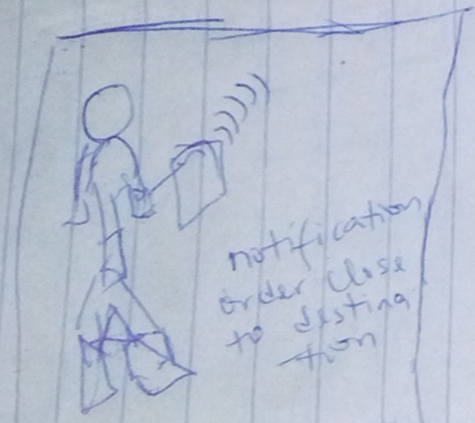 notification
order close
to destina
tion